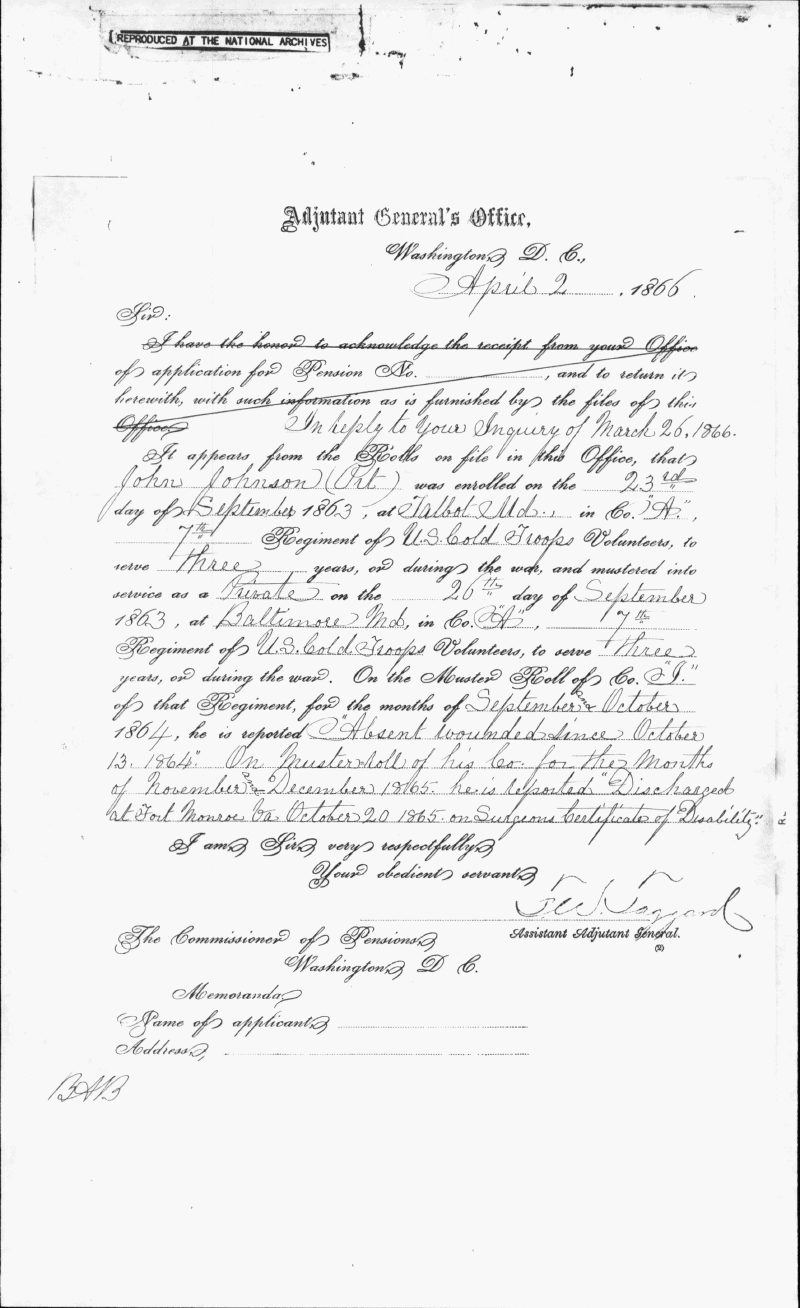 REPRODUCED AT THE NATIONAL ARCHIVES
Adjutant General's Office,
Washington, D. C.,
April 2, 1866.
Sir:
I have the honor to acknowledge the receipt from your Office
of application for Pension No. , and to return it
herewith, with such information as is furnished by the files of this
Office. In reply to your Inquiry of March 26, 1866.
It appears from the Rolls on file in this Office, that
John Johnson (Pvt) was enrolled on the 23rd
day of September 1863, at Talbot Md., in Co. "A",
7th Regiment of U.S. Cold Troops Volunteers, to
serve three years, or during the war, and mustered into
service as a Private on the 26th day of September
1863, at Baltimore Md, in Co. "A", 7th
Regiment of U.S. Cold Troops Volunteers, to serve three
years, or during the war. On the Muster Roll of Co. "I."
of that Regiment, for the months of September and October
1864, he is reported "Absent wounded since October
13. 1864". On Muster roll of his Co. for the Months
of November and December 1865. he is reported "Discharged
at Fort Monroe Va October 20 1865. on Surgeons Certificate of Disability."
I am, Sir, very respectfully,
Your obedient servant,
Assistant Adjutant General.
(2)
The Commissioner of Pensions,
Washington, D C.
Memoranda
Name of applicant,
Address,
BAB
R-